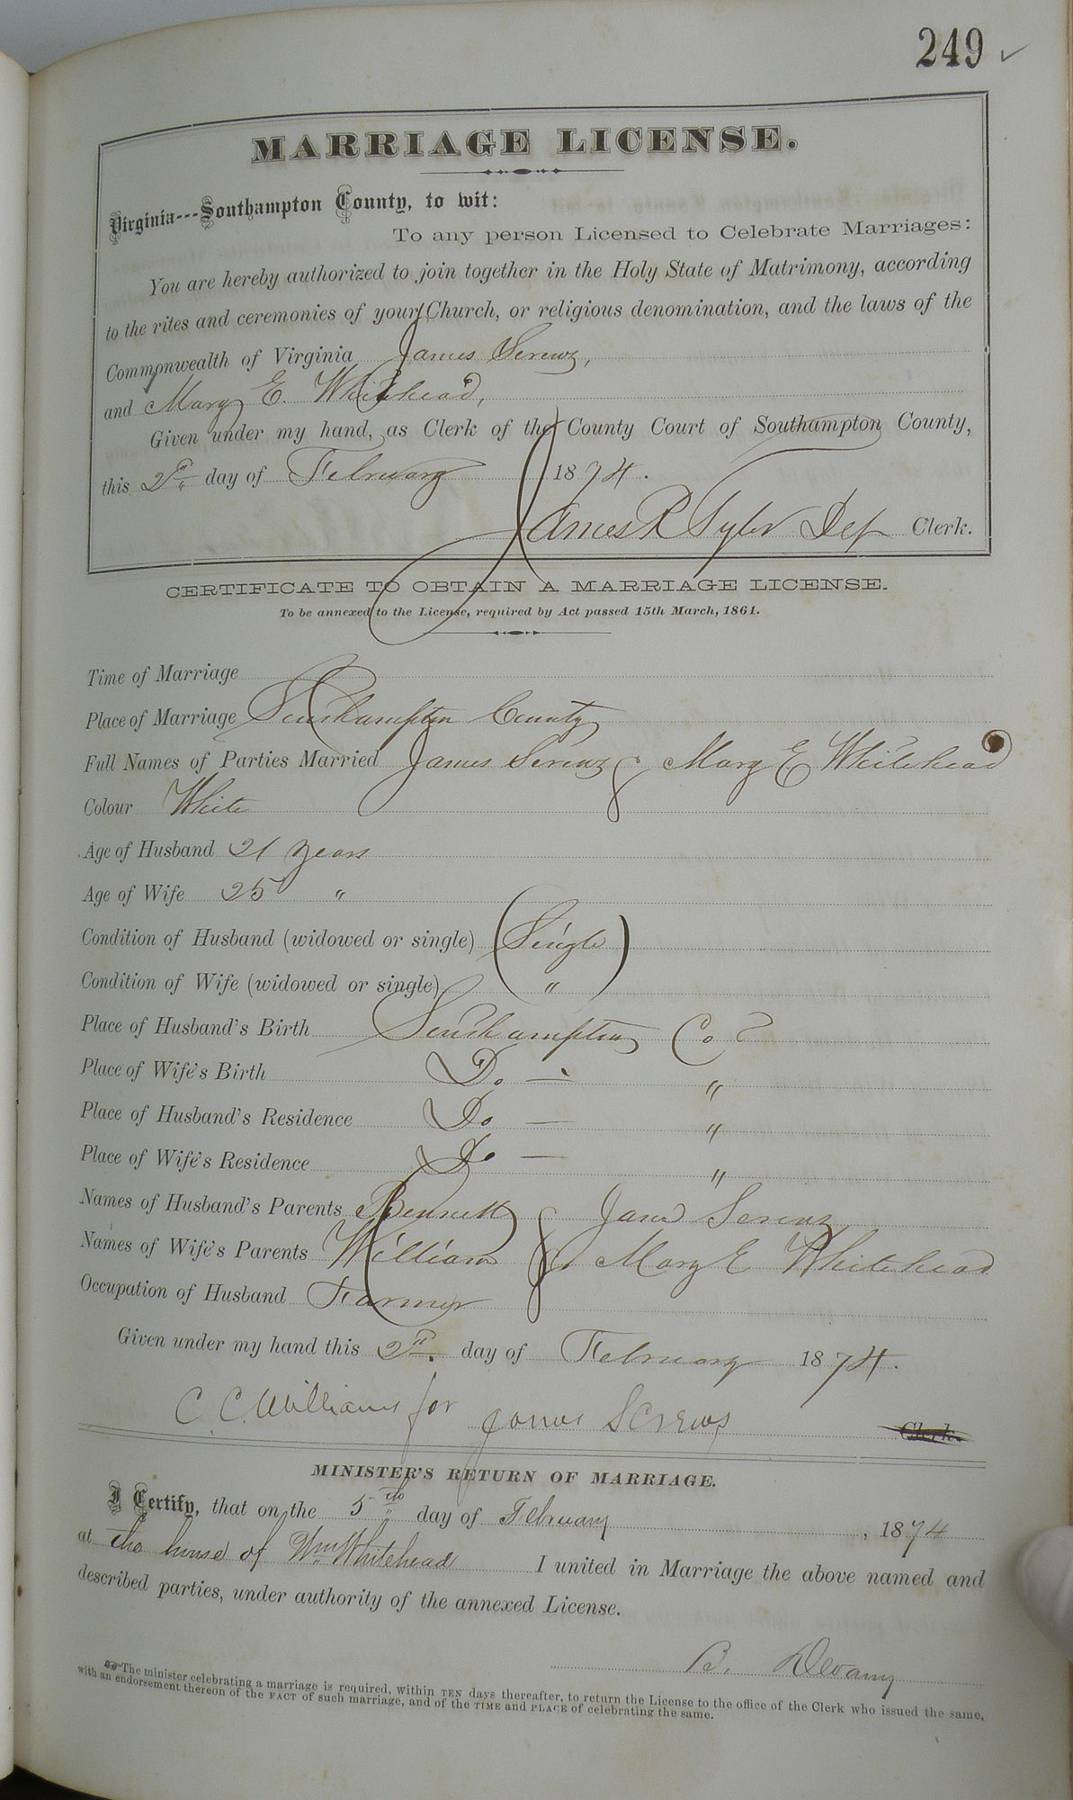 249 ✓
MARRIAGE LICENSE.
Virginia---Southampton County, to wit:
To any person Licensed to Celebrate Marriages:
You are hereby authorized to join together in the Holy State of Matrimony, according
to the rites and ceremonies of your Church, or religious denomination, and the laws of the
Commonwealth of Virginia James Screws,
and Mary E. Whitehead,
Given under my hand, as Clerk of the County Court of Southampton County,
this 2d day of February 1874.
James R Tyler Dep Clerk.
CERTIFICATE TO OBTAIN A MARRIAGE LICENSE.
To be annexed to the License, required by Act passed 15th March, 1861.
Time of Marriage
Place of Marriage Southampton County
Full Names of Parties Married James Screws & Mary E Whitehead
Colour White
Age of Husband 21 years
Age of Wife 25 "
Condition of Husband (widowed or single) Single
Condition of Wife (widowed or single) "
Place of Husband's Birth Southampton Co
Place of Wife's Birth Do — "
Place of Husband's Residence Do — "
Place of Wife's Residence Do — "
Names of Husband's Parents Bennett & Jane Screws
Names of Wife's Parents William & Mary E Whitehead
Occupation of Husband Farmer
Given under my hand this 2d. day of February 1874.
C. C. Williams for James Screws Clerk.
MINISTER'S RETURN OF MARRIAGE.
I Certify, that on the 5th day of February, 1874
at the house of Wm Whitehead I united in Marriage the above named and
described parties, under authority of the annexed License.
B. Devany
☞ The minister celebrating a marriage is required, within TEN days thereafter, to return the License to the office of the Clerk who issued the same,
with an endorsement thereon of the FACT of such marriage, and of the TIME and PLACE of celebrating the same.